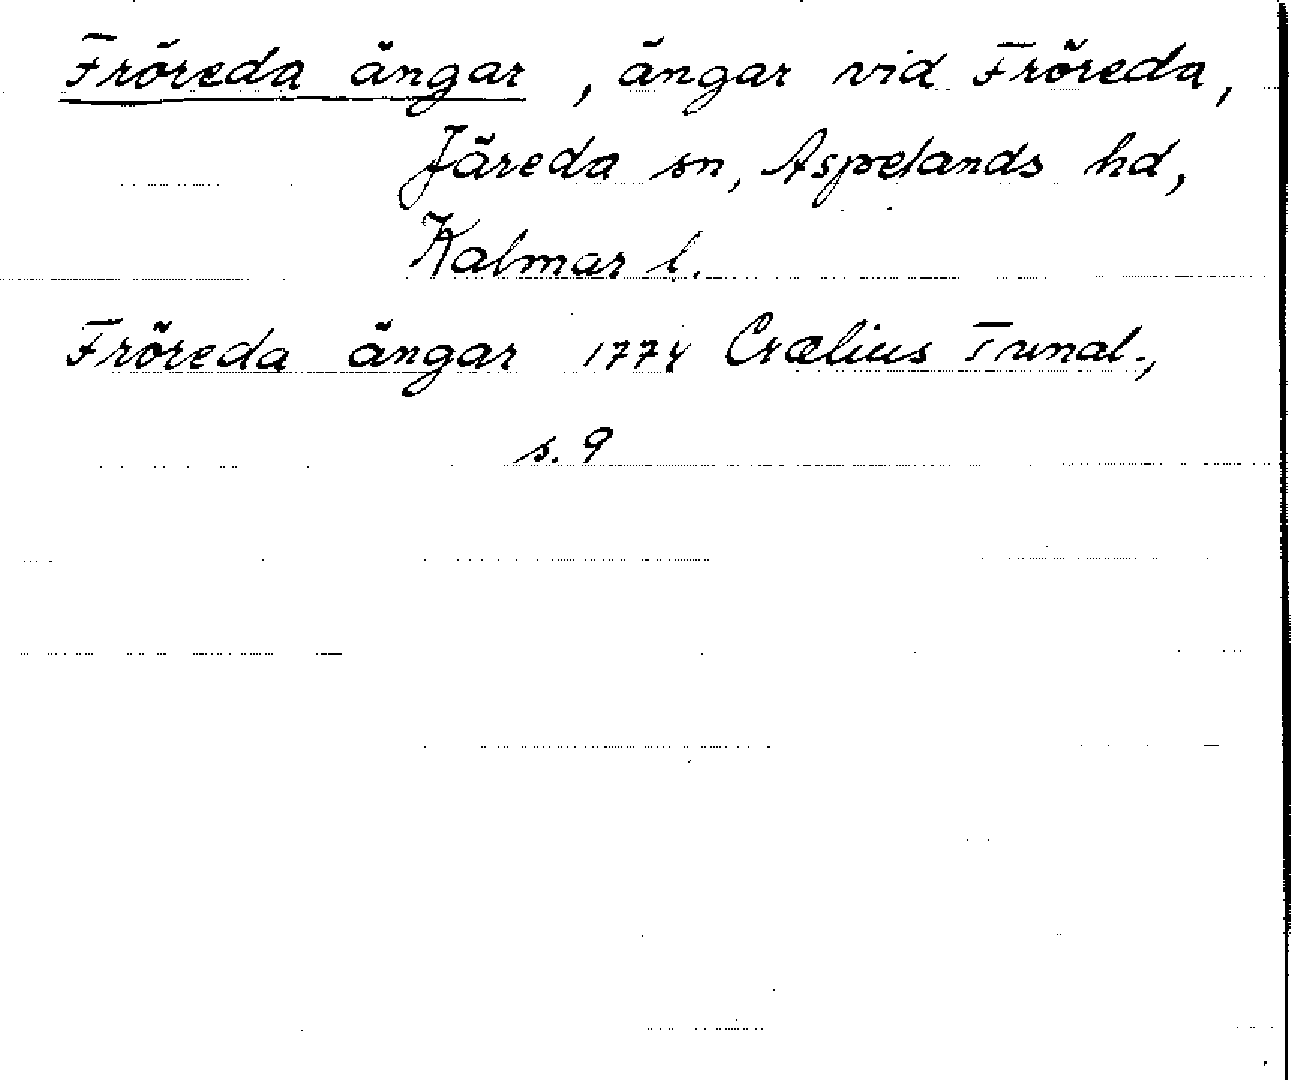 Fröreda ängar, ängar vid Fröreda,
Järeda sn, Aspelands hd,
Kalmar l.
Fröreda ängar 1774 Cralius Tunal.,
s. 9